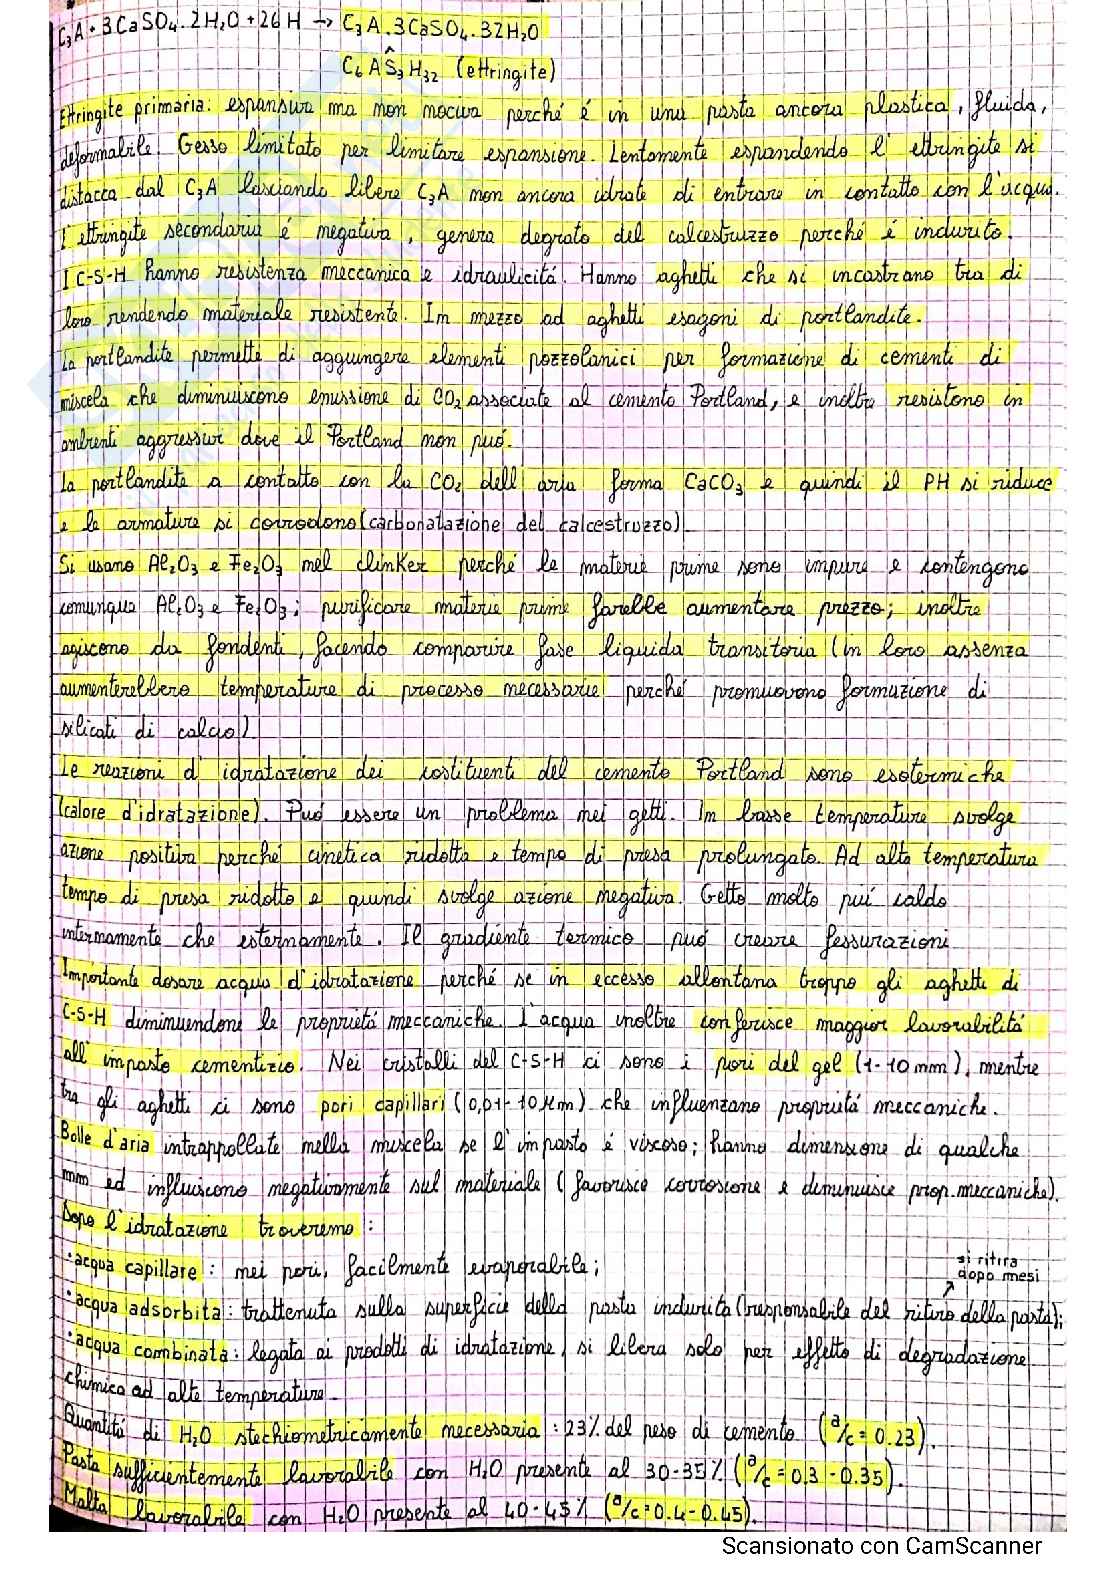 C₃A + 3CaSO₄.2H₂O + 26H → C₃A.3CaSO₄.32H₂O
C₆AŜ₃H₃₂ (ettringite)
Ettringite primaria: espansiva ma non nociva perché é in una pasta ancora plastica, fluida,
deformabile. Gesso limitato per limitare espansione. Lentamente espandendo l'ettringite si
distacca dal C₃A lasciando libere C₃A non ancora idrate di entrare in contatto con l'acqua.
L'ettringite secondaria é negativa, genera degrato del calcestruzzo perché é indurito.
I C-S-H hanno resistenza meccanica e idraulicitá. Hanno aghetti che si incastrano tra di
loro rendendo materiale resistente. In mezzo ad aghetti esagoni di portlandite.
La portlandite permette di aggiungere elementi pozzolanici per formazione di cementi di
miscela che diminuiscono emissione di CO₂ associate al cemento Portland, e inoltre resistono in
ambienti aggressivi dove il Portland non puó.
La portlandite a contatto con la CO₂ dell'aria forma CaCO₃ e quindi il PH si riduce
e le armature si corrodono (carbonatazione del calcestruzzo).
Si usano Al₂O₃ e Fe₂O₃ nel clinker perché le materie prime sono impure e contengono
comunque Al₂O₃ e Fe₂O₃; purificare materie prime farebbe aumentare prezzo; inoltre
agiscono da fondenti, facendo comparire fase liquida transitoria (in loro assenza
aumenterebbero temperature di processo necessarie perché promuovono formazione di
silicati di calcio).
Le reazioni d'idratazione dei costituenti del cemento Portland sono esotermiche
(calore d'idratazione). Puó essere un problema nei getti. In basse temperature svolge
azione positiva perché cinetica ridotta e tempo di presa prolungato. Ad alta temperatura
tempo di presa ridotto e quindi svolge azione negativa. Getto molto piú caldo
internamente che esternamente. Il gradiente termico puó creare fessurazioni.
Importante dosare acqua d'idratazione perché se in eccesso allontana troppo gli aghetti di
C-S-H diminuendone le proprietá meccaniche. L'acqua inoltre conferisce maggior lavorabilitá
all'impasto cementizio. Nei cristalli del C-S-H ci sono i pori del gel (1-10 nm), mentre
tra gli aghetti ci sono pori capillari (0,01-10 μm) che influenzano proprietá meccaniche.
Bolle d'aria intrappollate nella miscela se l'impasto é viscoso; hanno dimensione di qualche
mm ed influiscono negativamente sul materiale (favorisce corrosione e diminuisce prop. meccaniche).
Dopo l'idratazione troveremo:
·acqua capillare: nei pori, facilmente evaporabile;
si ritira
dopo mesi
↗
·acqua adsorbita: trattenuta sulla superficie della pasta indurita (responsabile del ritiro della pasta);
·acqua combinata: legata ai prodotti di idratazione, si libera solo per effetto di degradazione
chimica ad alte temperature.
Quantitá di H₂O stechiometricamente necessaria: 23% del peso di cemento (a/c = 0.23).
Pasta sufficientemente lavorabile con H₂O presente al 30-35% (a/c = 0.3 - 0.35).
Malta lavorabile con H₂O presente al 40-45% (a/c = 0.4 - 0.45).
Scansionato con CamScanner